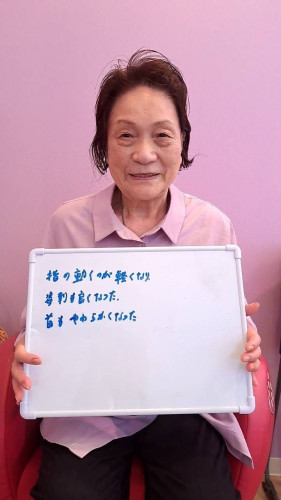 指の動くのが軽くなり
も良くなった.
首もやわらかくなった